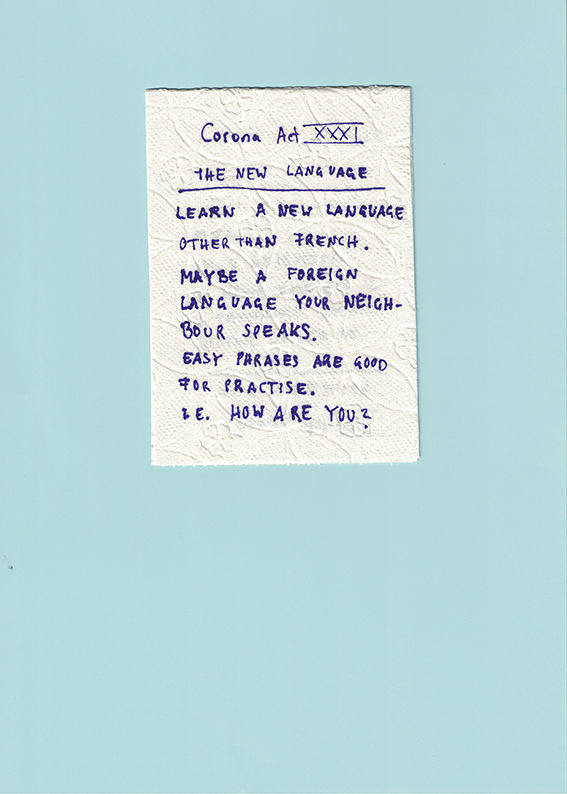 Corona Act XXXI
THE NEW LANGUAGE
LEARN A NEW LANGUAGE
OTHER THAN FRENCH.
MAYBE A FOREIGN
LANGUAGE YOUR NEIGH-
BOUR SPEAKS.
EASY PHRASES ARE GOOD
FOR PRACTISE.
I.E. HOW ARE YOU?